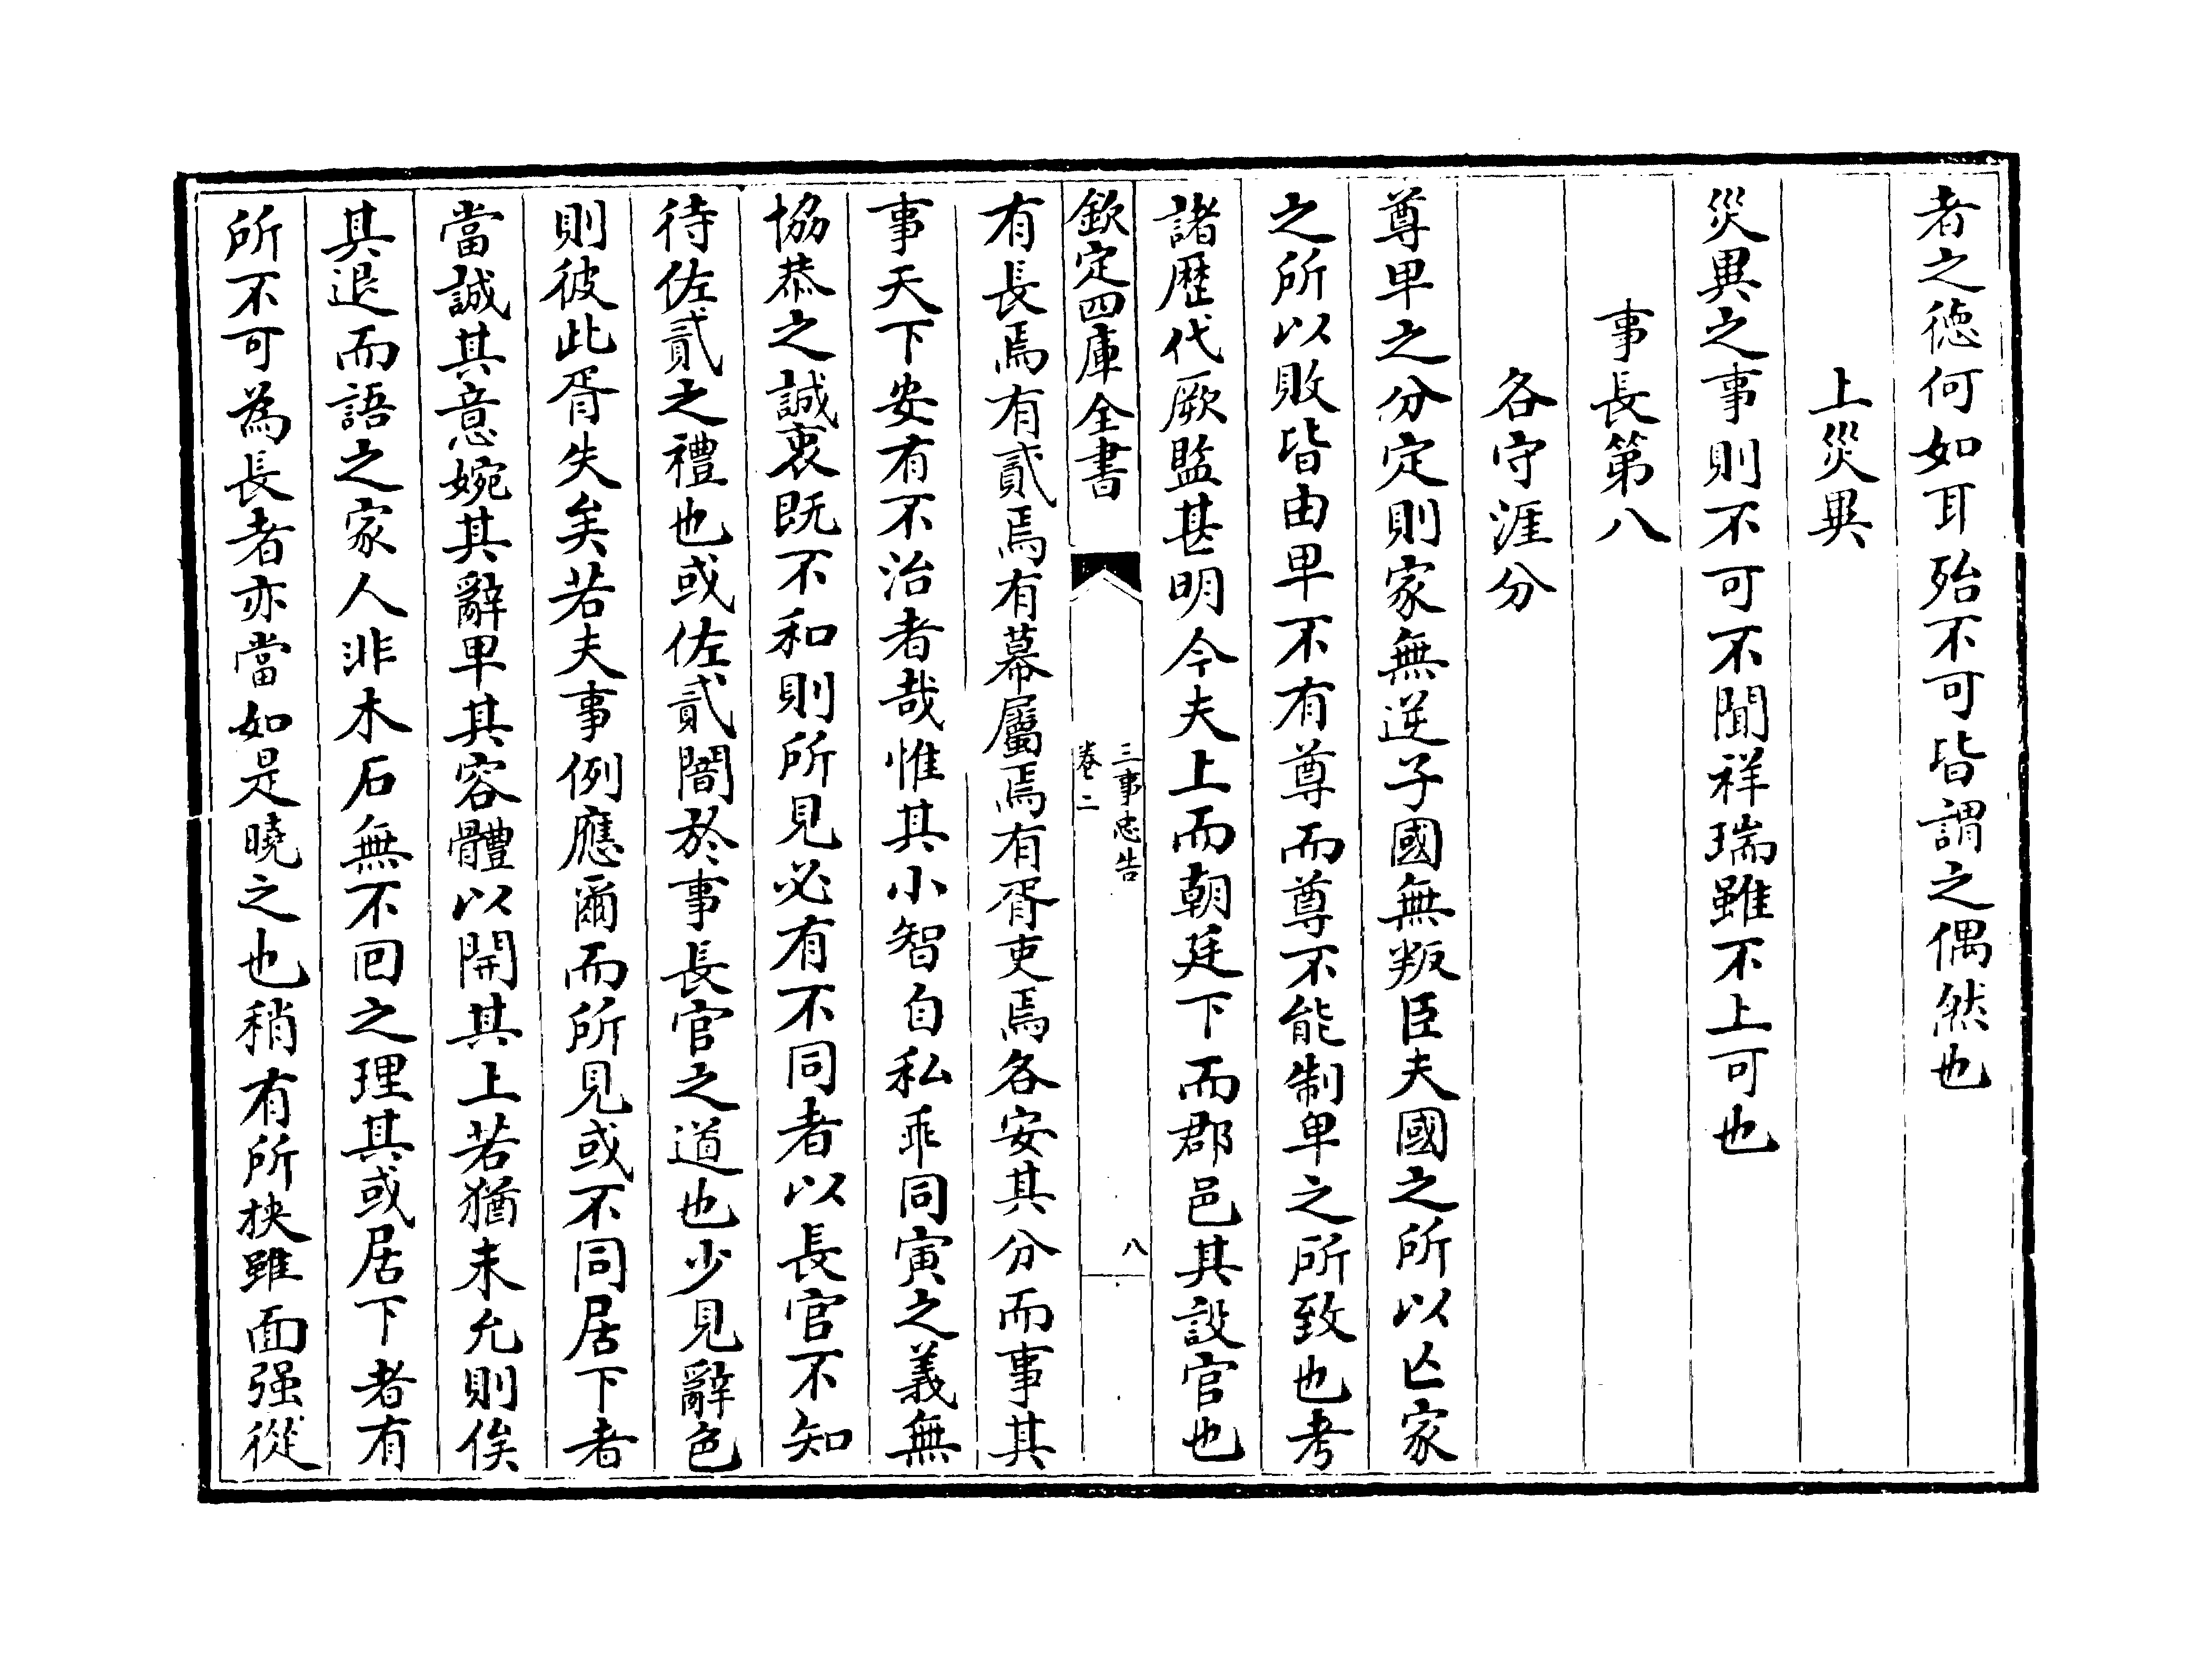 者之徳何如耳殆不可皆謂之偶然也
上災異
災異之事則不可不聞祥瑞雖不上可也
事長第八
各守涯分
尊卑之分定則家無逆子國無叛臣夫國之所以亡家
之所以敗皆由卑不有尊而尊不能制卑之所致也考
諸歴代厥監甚明今夫上而朝廷下而郡邑其設官也
欽定四庫全書
三事忠告
卷二
八
有長焉有貳焉有幕屬焉有胥吏焉各安其分而事其
事天下安有不治者哉惟其小智自私乖同寅之義無
協恭之誠衷既不和則所見必有不同者以長官不知
待佐貳之禮也或佐貳闇於事長官之道也少見辭色
則彼此胥失矣若夫事例應爾而所見或不同居下者
當誠其意婉其辭卑其容體以開其上若猶未允則俟
其退而語之家人非木石無不回之理其或居下者有
所不可為長者亦當如是曉之也稍有所挾雖面强從